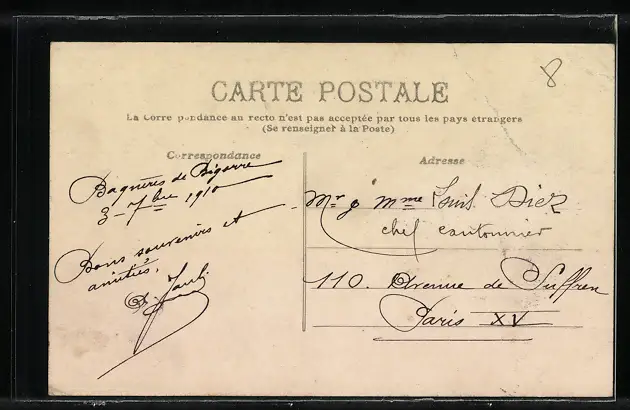 8
CARTE POSTALE
La Correspondance au recto n'est pas acceptée par tous les pays étrangers
(Se renseigner à la Poste)
Correspondance
Adresse
Bagnères de Bigorre
3 - 7bre 1910
Bons souvenirs et
amitiés.
Mr & Mme Diez
chef cantonnier
110. Avenue de Suffren
Paris XV